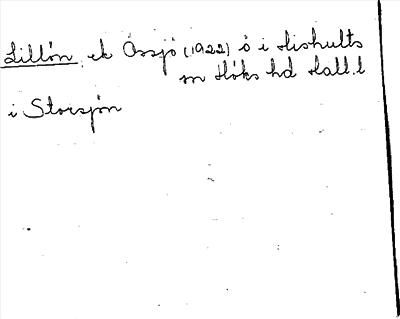 Lillön, ek Össjö (1922) ö i Hishults
sn Höks hd Hall. l
i Storsjön